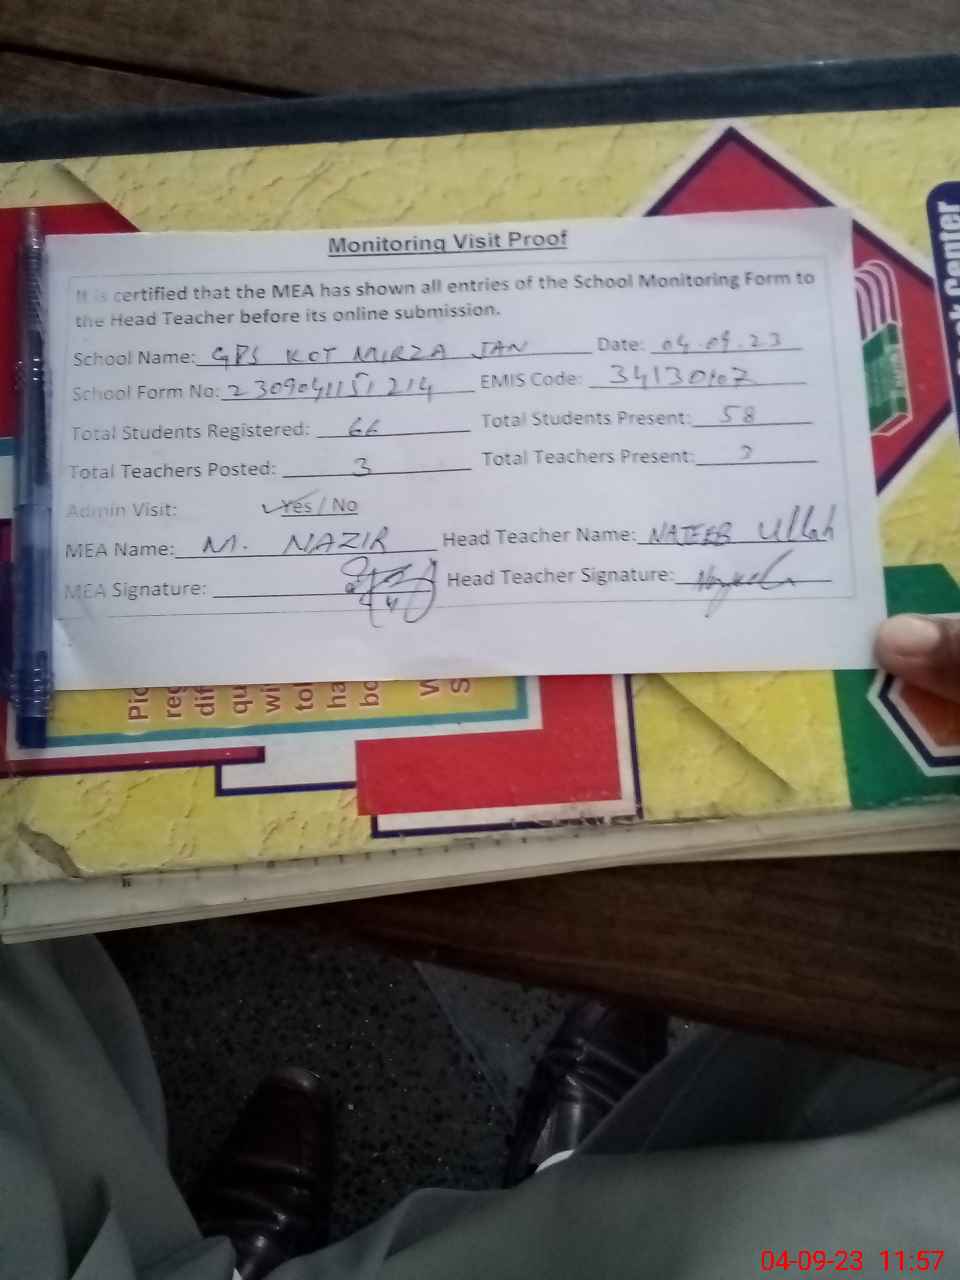 Monitoring Visit Proof
It is certified that the MEA has shown all entries of the School Monitoring Form to
the Head Teacher before its online submission.
School Name: GPS KOT MIRZA JAN Date: 04.09.23
School Form No: 2309041151214 EMIS Code: 34130107
Total Students Registered: 66 Total Students Present: 58
Total Teachers Posted: 3 Total Teachers Present: 3
Admin Visit: Yes / No
MEA Name: M. NAZIR Head Teacher Name: NAJEEB Ullah
MEA Signature: Head Teacher Signature:
Center
Pic
reg
dif
qu
wi
tol
ha
bo
W
S
04-09-23 11:57